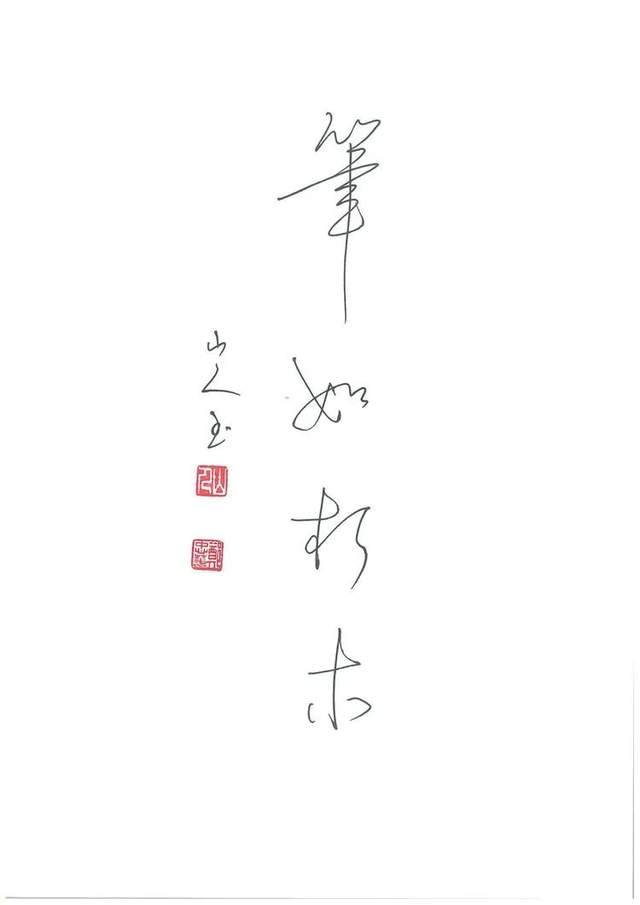 筆如朽木
山人玉